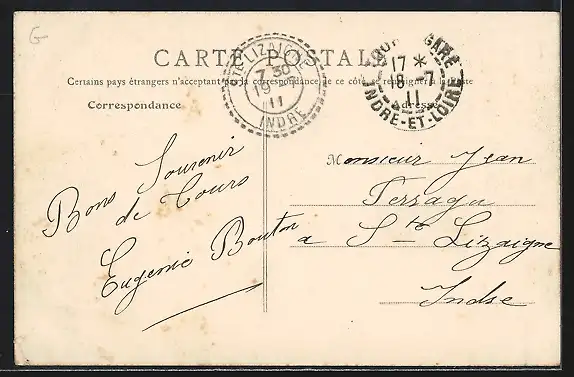 G
CARTE POSTALE
Certains pays étrangers n'acceptant pas la correspondance de ce côté, se renseigner à la Poste
Correspondance
Adresse
STE LIZAIGNE
7 30
19
11
INDRE
GARE
17 *
18 - 7
11
INDRE-ET-LOIRE
Bons Souvenir
de Tours
Eugenie Bouton
Monsieur Jean
a Ste Lizaigne
Indre